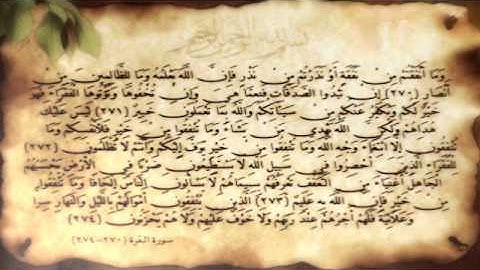 بسم الله الرحمن الرحيم
وَمَا أَنفَقْتُمْ مِنْ نَفَقَةٍ أَوْ نَذَرْتُمْ مِنْ نَذْرٍ فَإِنَّ اللَّهَ يَعْلَمُهُ وَمَا لِلظَّالِمِينَ مِنْ
أَنْصَارٍ (٢٧٠) إِنْ تُبْدُوا الصَّدَقَاتِ فَنِعِمَّا هِيَ وَإِنْ تُخْفُوهَا وَتُؤْتُوهَا الْفُقَرَاءَ فَهُوَ
خَيْرٌ لَكُمْ وَيُكَفِّرُ عَنْكُمْ مِنْ سَيِّئَاتِكُمْ وَاللَّهُ بِمَا تَعْمَلُونَ خَبِيرٌ (٢٧١) لَيْسَ عَلَيْكَ
هُدَاهُمْ وَلَكِنَّ اللَّهَ يَهْدِي مَنْ يَشَاءُ وَمَا تُنْفِقُوا مِنْ خَيْرٍ فَلِأَنْفُسِكُمْ وَمَا
تُنْفِقُونَ إِلَّا ابْتِغَاءَ وَجْهِ اللَّهِ وَمَا تُنْفِقُوا مِنْ خَيْرٍ يُوَفَّ إِلَيْكُمْ وَأَنْتُمْ لَا تُظْلَمُونَ (٢٧٢)
لِلْفُقَرَاءِ الَّذِينَ أُحْصِرُوا فِي سَبِيلِ اللَّهِ لَا يَسْتَطِيعُونَ ضَرْبًا فِي الْأَرْضِ يَحْسَبُهُمُ
الْجَاهِلُ أَغْنِيَاءَ مِنَ التَّعَفُّفِ تَعْرِفُهُمْ بِسِيمَاهُمْ لَا يَسْأَلُونَ النَّاسَ إِلْحَافًا وَمَا تُنْفِقُوا
مِنْ خَيْرٍ فَإِنَّ اللَّهَ بِهِ عَلِيمٌ (٢٧٣) الَّذِينَ يُنْفِقُونَ أَمْوَالَهُمْ بِاللَّيْلِ وَالنَّهَارِ سِرًّا
وَعَلَانِيَةً فَلَهُمْ أَجْرُهُمْ عِنْدَ رَبِّهِمْ وَلَا خَوْفٌ عَلَيْهِمْ وَلَا هُمْ يَحْزَنُونَ (٢٧٤)
سورة البقرة (٢٧٠-٢٧٤)